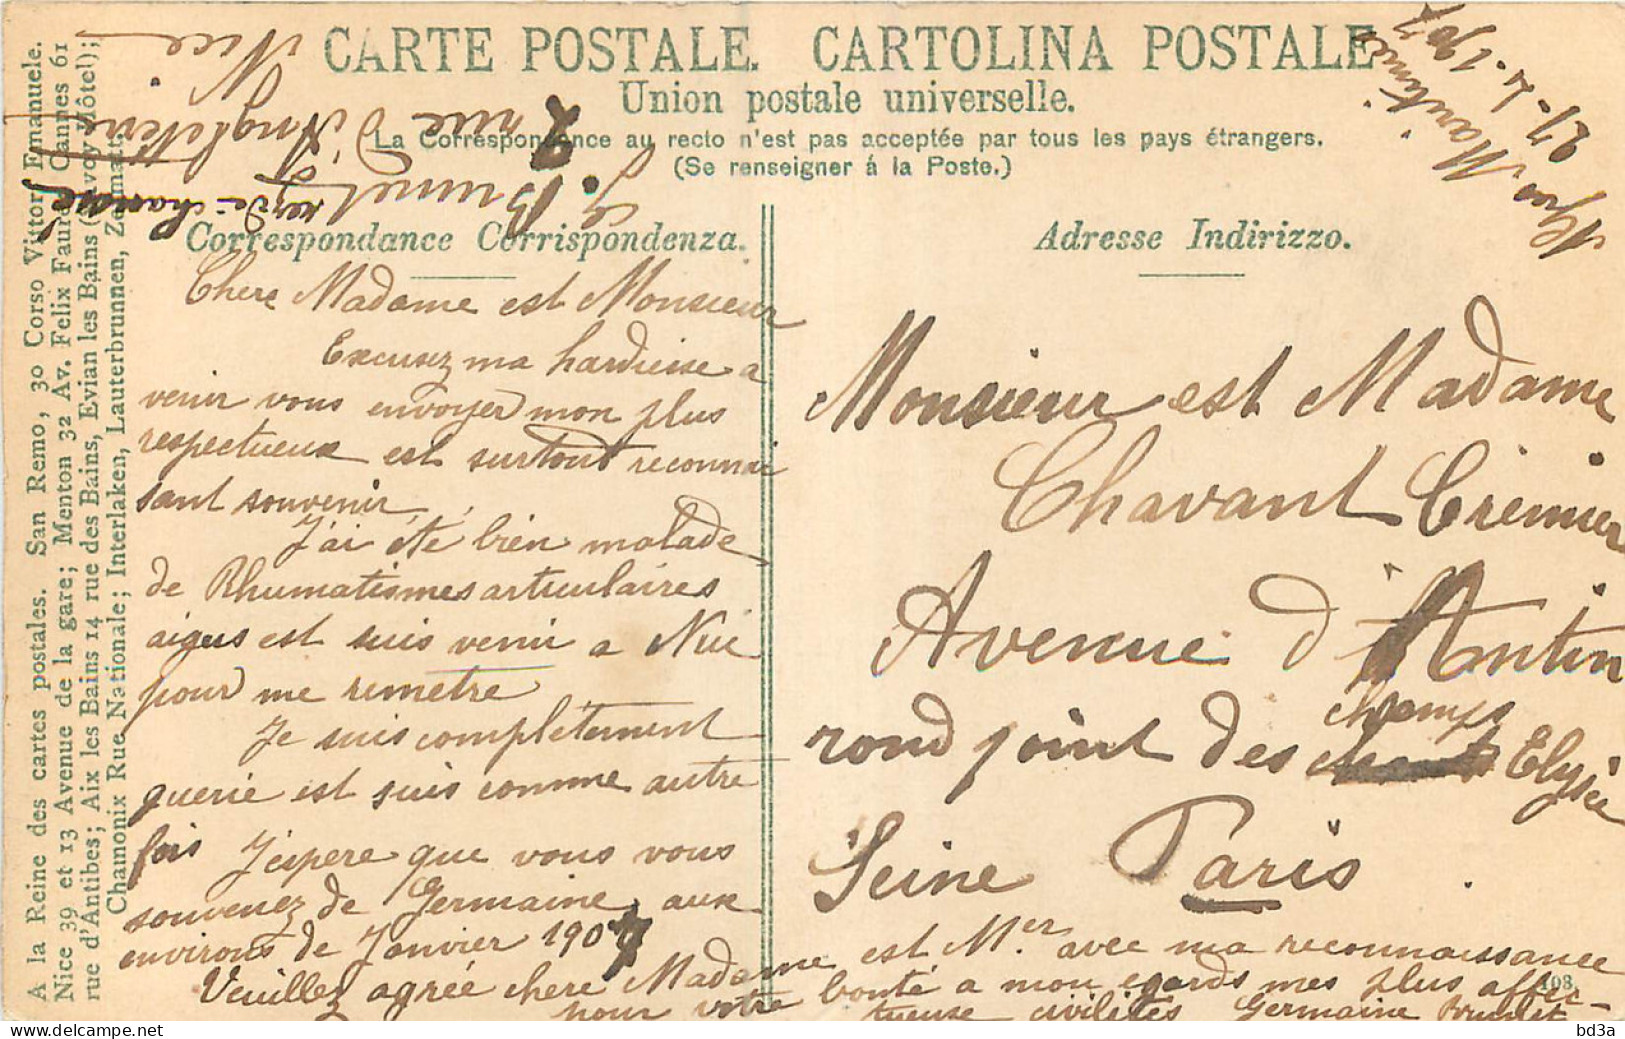 CARTE POSTALE. CARTOLINA POSTALE
Union postale universelle.
La Correspondence au recto n'est pas acceptée par tous les pays étrangers.
(Se renseigner á la Poste.)
Correspondance Corrispondenza.
Adresse Indirizzo.
A la Reine des cartes postales. San Remo, 30 Corso Vittorio Emanuele.
Nice 39 et 13 Avenue de la gare; Menton 32 Av. Felix Faure Cannes 61
rue d'Antibes; Aix les Bains 14 rue des Bains, Evian les Bains (Savoy Hôtel);
Chamonix Rue Nationale; Interlaken, Lauterbrunnen, Zermatt.
Alpes Maritimes
27-4-1907
G. Brunet rez de chaussé
2 rue d'Angleterre
Nice
Chere Madame est Monsieur
Excusez ma hardieise a
venir vous envoyer mon plus
respectueux est surtout reconnai
sant souvenir,
J'ai été bien malade
de Rhumatismes articulaires
aigus est suis venir a Nice
pour me remetre
Je suis complétement
guerie est suis comme autre
fois J'éspere que vous vous
souvenez de Germaine, aux
environs de Janvier 1907
Veuillez agrée chere Madame est Mer avec ma reconnaissance
pour votre bonté a mon egards mes plus affec-
tueuse civilités Germaine Brunet
Monsieur est Madame
Chavant Crémier
Avenue d'Antin
rond point des champs Elysée
Seine Paris
108.
bd3a
delcampe.net